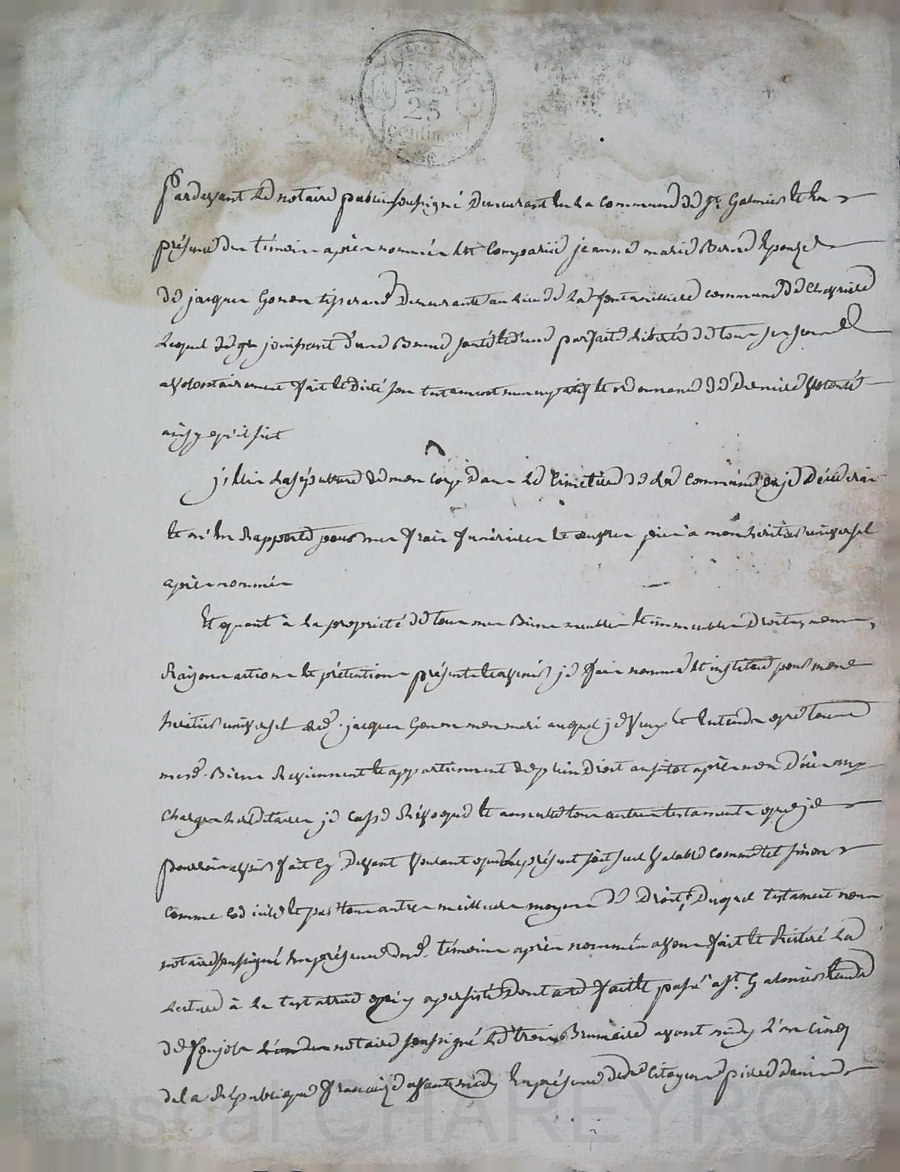 25
centimes
Pardevant le notaire public soussigné demeurant en la commune de St. Galmier et en
présence des témoins après nommés est comparüe jeanne marie Berne épouze
de jacques Gonon tisserand demeurante au lieu de la commune de Chevrières
Laquelle de gré jouissant d'une bonne santé et d'une parfaite liberté de tous ses sens
a volontairement fait et dicté son testament nuncupatif et ordonnance de dernière volonté
ainsy qu'il suit
j'élis la sépulture de mon corps dans le cimetière de la commune où je décéderai
et m'en rapporte pour mes frais funéraires et œuvres pies à mon héritier universel
après nommé
Et quant à la propriété de tous mes biens meubles et immeubles droits, noms,
raisons actions et prétentions présents et avenir je fais nomme et institue pour mon
héritier universel led. jacques Gonon mon mari auquel je veux et entends que tous
mesd. biens reviennent et appartiennent de plein droit aussitôt après mon décès aux
charges héréditaires je casse révoque et annulle tous autres testaments que je
pourrois avoir fait cy devant voulant que le présent soit seul valable comme tel sinon
comme codicile et par tous autres meilleurs moyens de droit, Duquel testament nous
notaire soussigné en présence desd. témoins après nommés avons fait et réitéré la
lecture à la testatrice qui y a persisté dont acte fait et passé à St. Galmier étude
de notaire soussigné le trois Brumaire avant midy l'an cinq
de la République française avant midy En présence de citoyens pierre
Pascal CHAREYRON